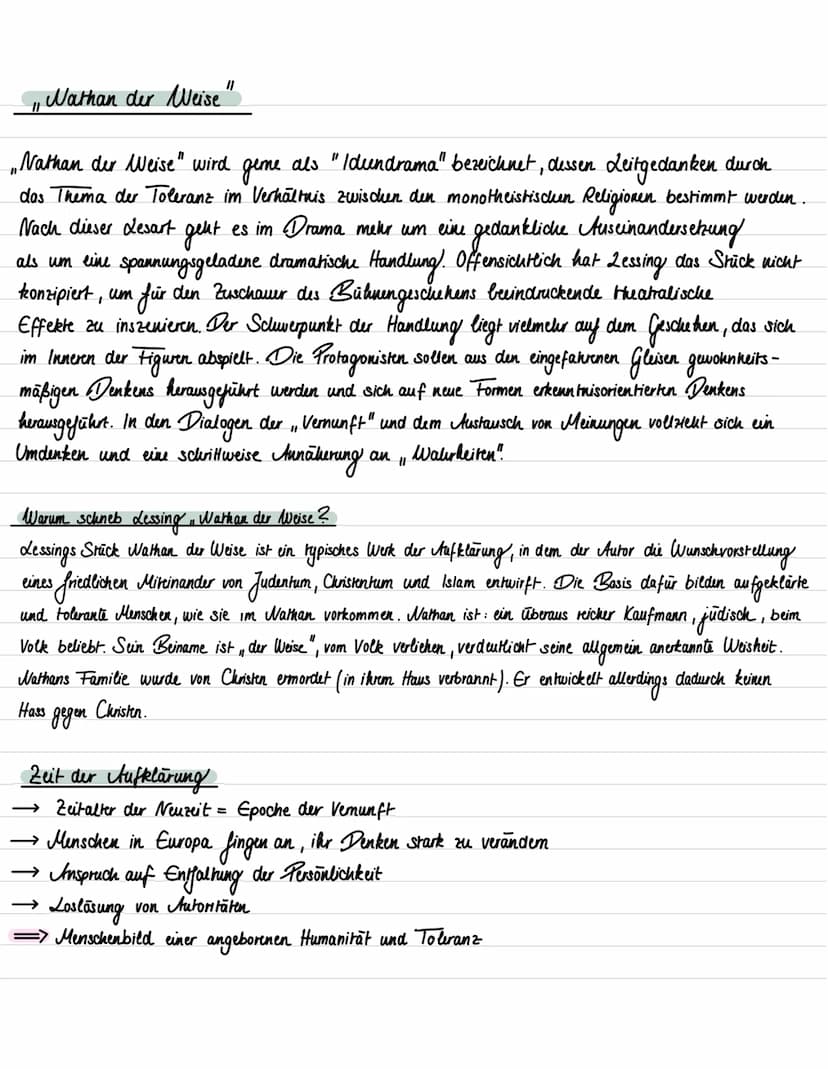 „Nathan der Weise"
„Nathan der Weise" wird gerne als "Ideendrama" bezeichnet, dessen Leitgedanken durch
das Thema der Toleranz im Verhältnis zwischen den monotheistischen Religionen bestimmt werden.
Nach dieser Lesart geht es im Drama mehr um eine gedankliche Auseinandersetzung
als um eine spannungsgeladene dramatische Handlung. Offensichtlich hat Lessing das Stück nicht
konzipiert, um für den Zuschauer des Bühnengeschehens beeindruckende theatralische
Effekte zu inszenieren. Der Schwerpunkt der Handlung liegt vielmehr auf dem Geschehen, das sich
im Inneren der Figuren abspielt. Die Protagonisten sollen aus den eingefahrenen Gleisen gewohnheits-
mäßigen Denkens herausgeführt werden und sich auf neue Formen erkenntnisorientierten Denkens
herausgeführt. In den Dialogen der „Vernunft" und dem Austausch von Meinungen vollzieht sich ein
Umdenken und eine schrittweise Annäherung an „Wahrheiten".
Warum schrieb Lessing „Nathan der Weise?
Lessings Stück Nathan der Weise ist ein typisches Werk der Aufklärung, in dem der Autor die Wunschvorstellung
eines friedlichen Miteinander von Judentum, Christentum und Islam entwirft. Die Basis dafür bilden aufgeklärte
und tolerante Menschen, wie sie im Nathan vorkommen. Nathan ist: ein überaus reicher Kaufmann, jüdisch, beim
Volk beliebt. Sein Beiname ist „der Weise", vom Volk verliehen, verdeutlicht seine allgemein anerkannte Weisheit.
Nathans Familie wurde von Christen ermordet (in ihrem Haus verbrannt). Er entwickelt allerdings dadurch keinen
Hass gegen Christen.
Zeit der Aufklärung
→ Zeitalter der Neuzeit = Epoche der Vernunft
→ Menschen in Europa fingen an, ihr Denken stark zu verändern
→ Anspruch auf Entfaltung der Persönlichkeit
→ Loslösung von Autoritäten
⇒ Menschenbild einer angeborenen Humanität und Toleranz